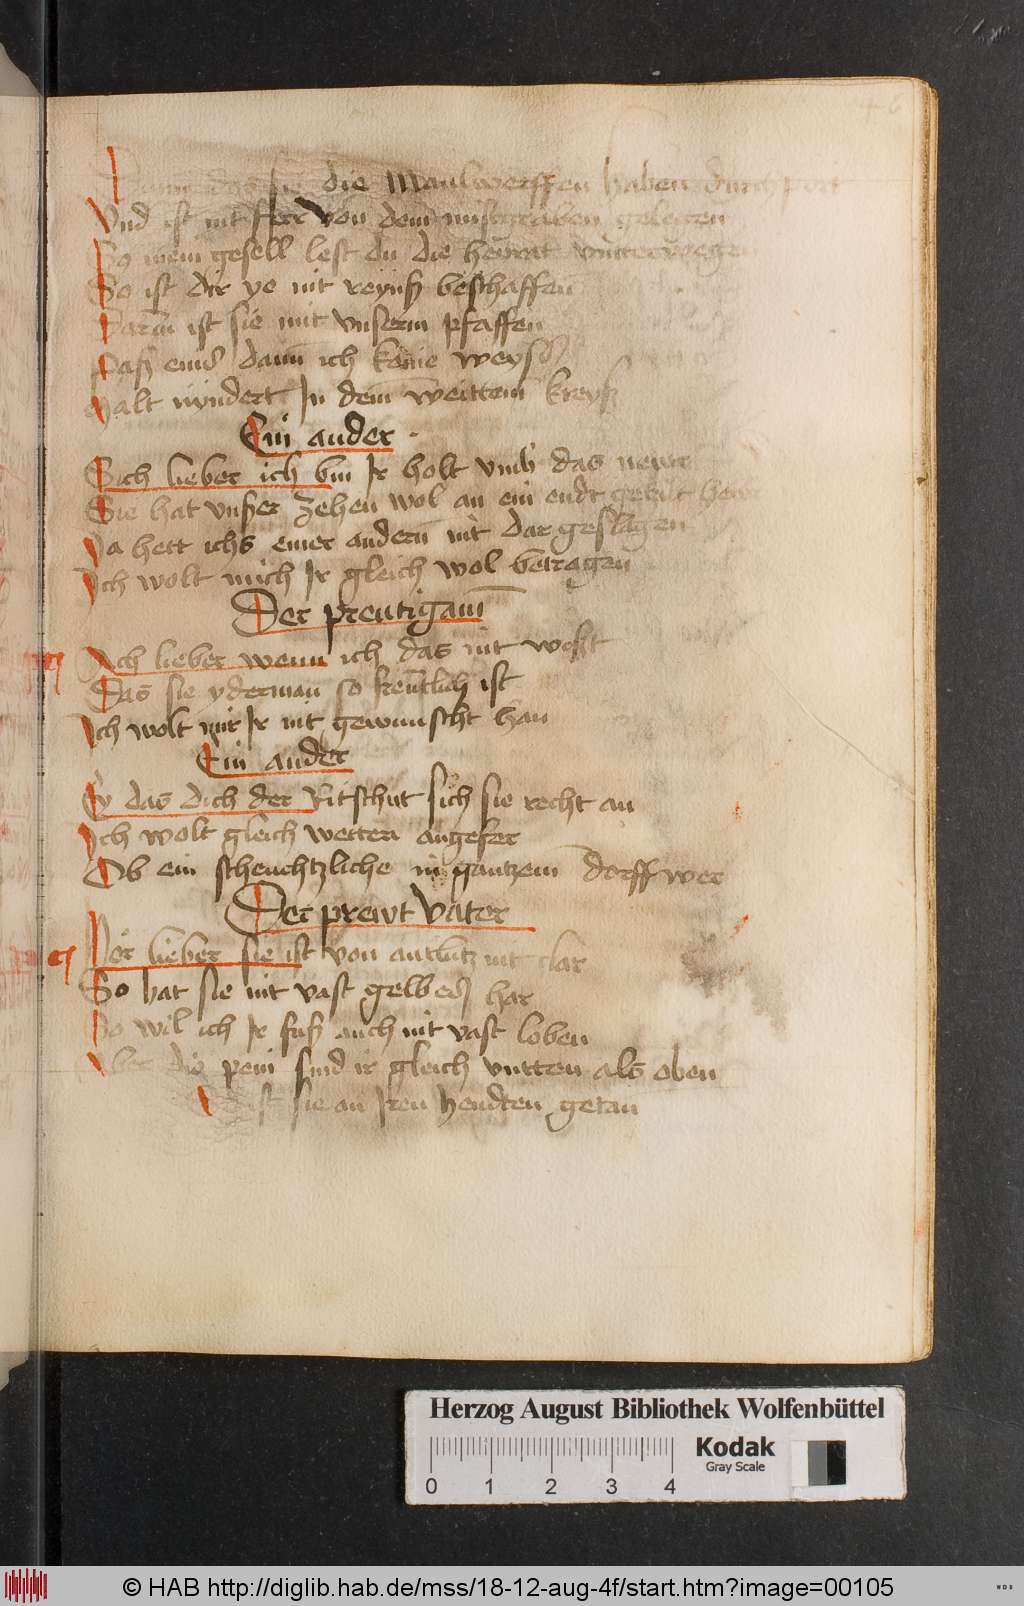 die Maulwerffen haben durchport
Vnd ist nit ferr von dem mistgraben gelegen
So mein gesell lest du die heyrat vnterwegen
So ist dir ye nit reyniß beschaffen
Darum ist sie mit vnserm pfaffen
Daß dann ich keine weyß
Halt nyndert In dem weittem kreyß
Ein ander
Sich lieber ich bin Ir holt vmb das newr
Sie hat vnßer zehen wol an ein endt gefült hewr
Da hett ichs einer andern nit dar geslagen
Ich wolt mich Ir gleich wol betragen
Der preutigam
Ach lieber wenn ich das nit west
Das sie yderman so frentlich ist
Ich wolt mir Ir nit gewunscht han
Ein ander
Ey das dich der Ritschüt sich sie recht an
Ich wolt gleich wetten angefer
Ob ein scheuchtzliche in gantzem dorff wer
Der prewt Vater
Hör lieber sie ist von antlutz nit clar
So hat sie nit vast gelbes har
So wil ich Ir fuß auch nit vast loben
Aber die pein sind ir gleich vntten als oben
ist sie an Iren hendten getan
Herzog August Bibliothek Wolfenbüttel
Kodak
Gray Scale
0 1 2 3 4
© HAB http://diglib.hab.de/mss/18-12-aug-4f/start.htm?image=00105